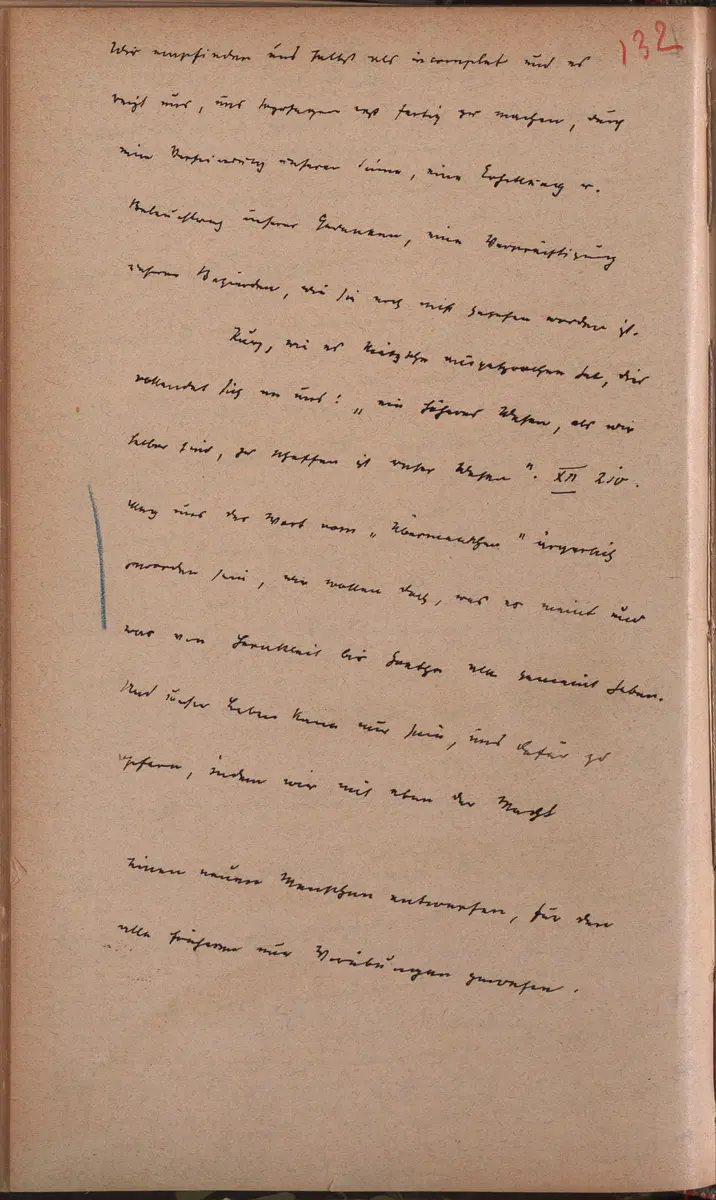 132
Wir empfinden uns selbst als incomplet und es
reizt uns, uns sozusagen erst fertig zu machen, durch
eine Verfeinerung unserer Sinne, eine Erhellung u.
Beleuchtung unserer Gedanken, eine Verkräftigung
unserer Begierden, wie sie noch nicht gesehen worden ist.
Kurz, wie es Nietzsche ausgesprochen hat, dies
vollendet sich an uns: „ein höheres Wesen, als wir
selber sind, zu schaffen ist unser Wesen". XII 210.
Mag uns das Wort vom „Übermenschen" ärgerlich
geworden sein, wir wollen doch, was es meint und
was von Heraklait bis Goethe alle gemeint haben.
Und unser Leben kann nur sein, uns dafür zu
opfern, indem wir mit aller der Macht
einen neuen Menschen entwerfen, für den
alle früheren nur Vorübungen gewesen.